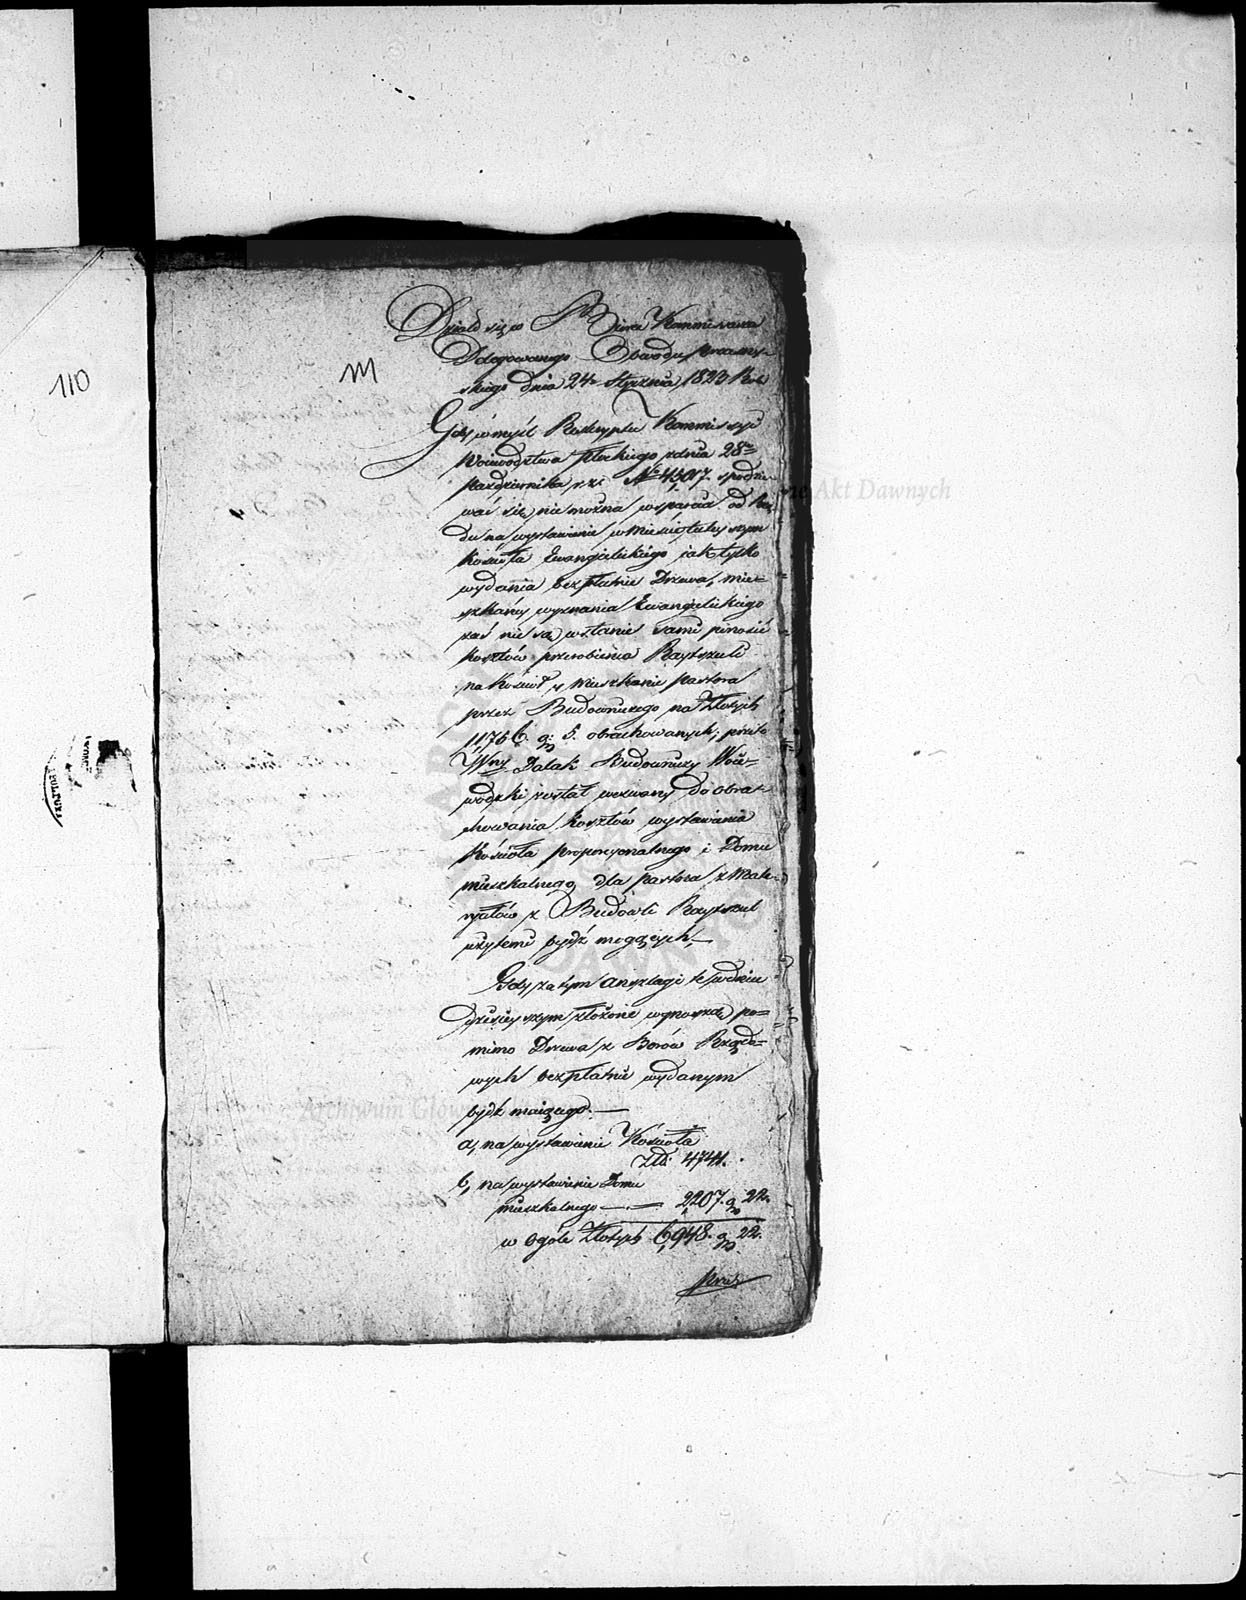 110
111
Działo się w Biurze Kommissarza
Delegowanego Obwodu Przasny-
skiego dnia 24 Stycznia 1823 Rok
Gdy w myśl Reskryptu Kommissyi
Woiewództwa Płockiego z dnia 28
Października r. z. No 45017. spodzie-
wać się nie można wsparcia od Rzą
du na wystawienie w Mieście tuteyszym
Kościoła Ewangelickiego jak tylko
wydania bezpłatnie Drzewa, mie-
szkańcy wyznania Ewangelickiego
zaś nie są w stanie sami ponosić
kosztów przerobienia
na Kościół y Mieszkanie Pastora
przez Budowniczego na Złotych
11756. g: 5. obrachowanych; przeto
WJny Budowniczy Woie-
wódzki został wezwany do obra-
chowania kosztów wystawienia
Kościoła proporcyonalnego i Domu
mieszkalnego dla Pastora z Mate-
ryałów z Budowli
użytemi bydź mogących.—
Gdy zatym anszlagi te w dniu
dzisieyszym złożone wynoszą po=
mimo Drzewa z Borów Rządo=
wych bezpłatnie wydanym
bydź maiącego.—
a, na wystawienie Kościoła
Złt: 4741.
b, na wystawienie Domu
mieszkalnego — — 2207. g 22.
w ogóle Złotych 6,948. g 22.
Archiwum Główne Akt Dawnych
Archiwum Główne Akt Dawnych